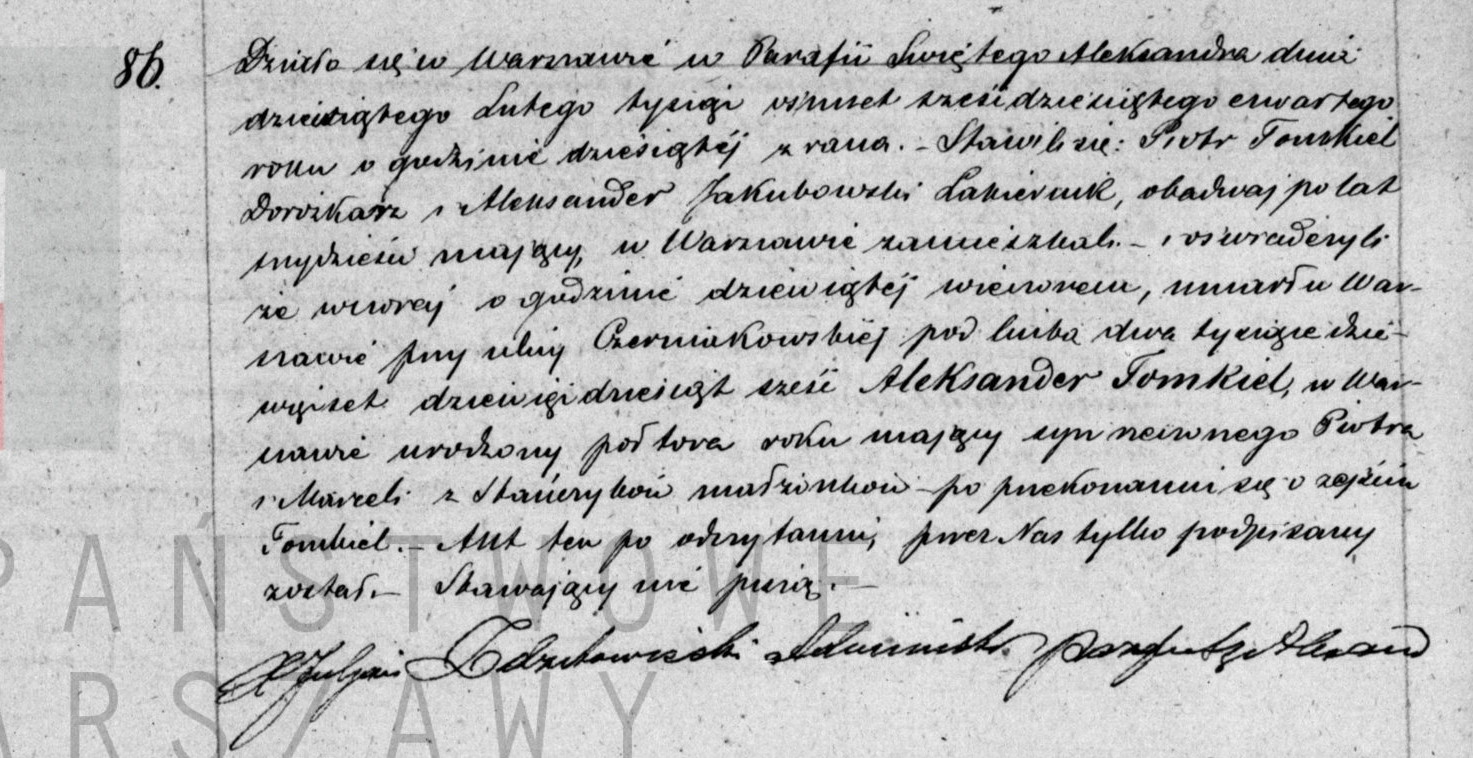 86.
Działo się w Warszawie w Parafii Świętego Aleksandra dnia
dziesiątego Lutego tysiąc ośmset sześćdziesiątego czwartego
roku o godzinie dziesiątéj z rana. – Stawili się: Piotr Tomkiel
Dorożkarz i Aleksander Jakubowski Lakiernik, obadwaj po lat
trzydzieści mający, w Warszawie zamieszkali. – i oświadczyli
że wczoraj o godzinie dziewiątéj wieczorem, umarł w War-
szawie przy ulicy Czerniakowskiéj pod liczbą dwa tysiące dzie-
więćset dziewięćdziesiąt sześć Aleksander Tomkiel, w War-
szawie urodzony półtora roku mający syn niewonego Piotra
i Marceli z Stańczyków małżonków – po przekonaniu się o zejściu
Tomkiel. – Akt ten po odczytaniu, przez Nas tylko podpisany
został. – Stawający nie piszą. –
X Juljan Administr. paraf Sgo Alexand
PAŃSTWOWE
ARSZAWY